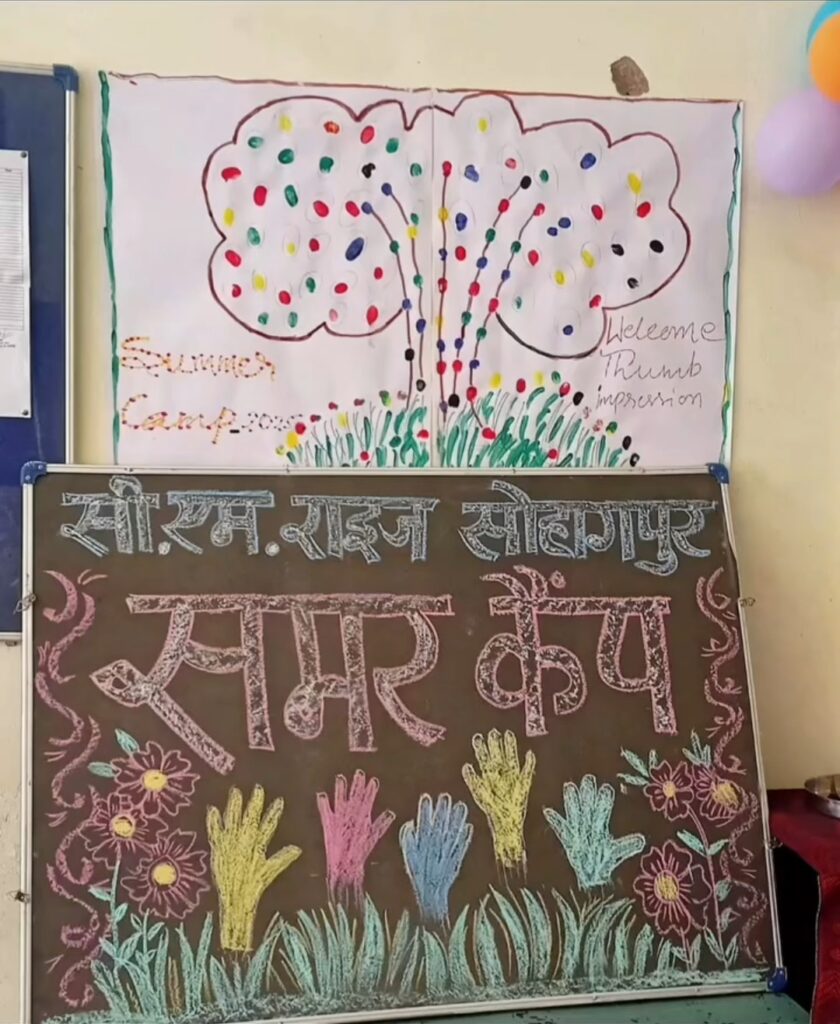 Summer
Camp_2025
Welcome
Thumb
impression
सी.एम. राइज सोहागपुर
समर कैंप